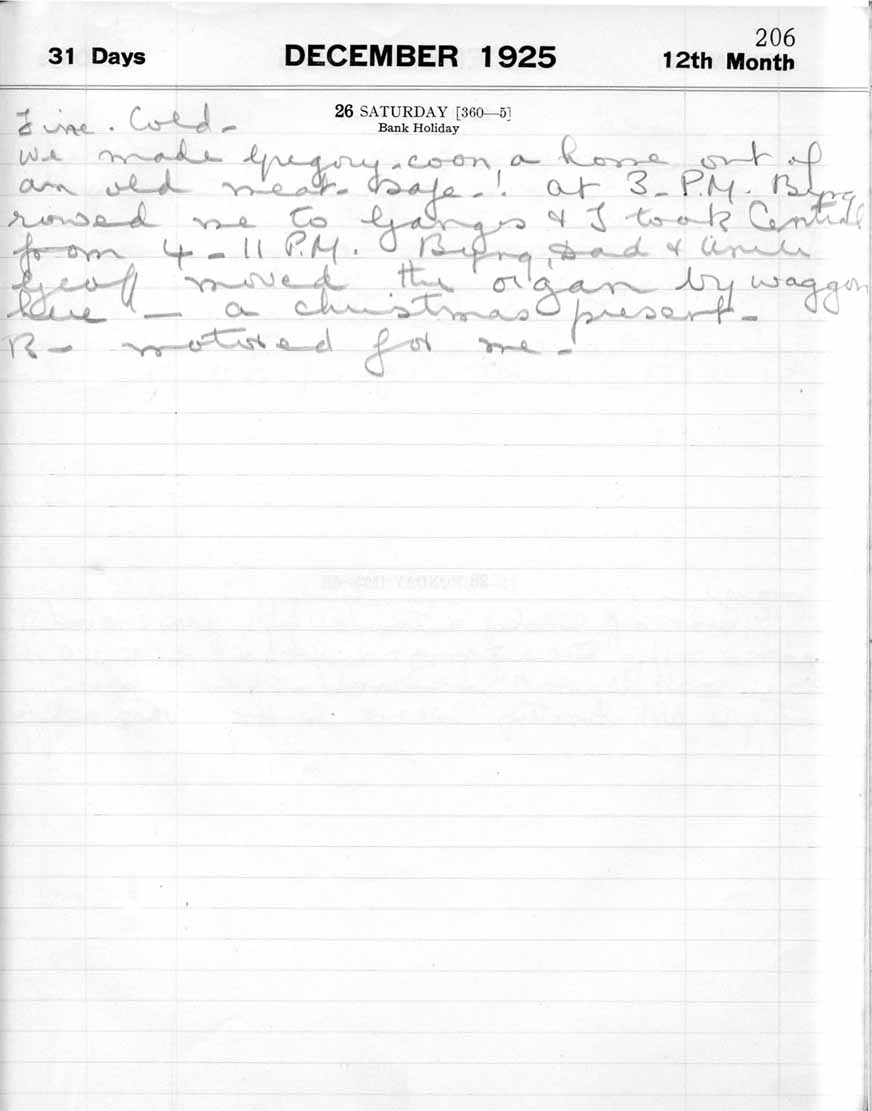 206
31 Days DECEMBER 1925 12th Month
26 SATURDAY [360—5]
Bank Holiday
Fine. Cold –
We made Gregory-coon, a home out of
an old meat-safe –! at 3 – P.M. Byng
rowed me to Ganges & I took Central
from 4 – 11 P.M. Byng, Dad & Uncle
Geoff moved the organ by waggon
here – a christmas present –
B – motored for me –